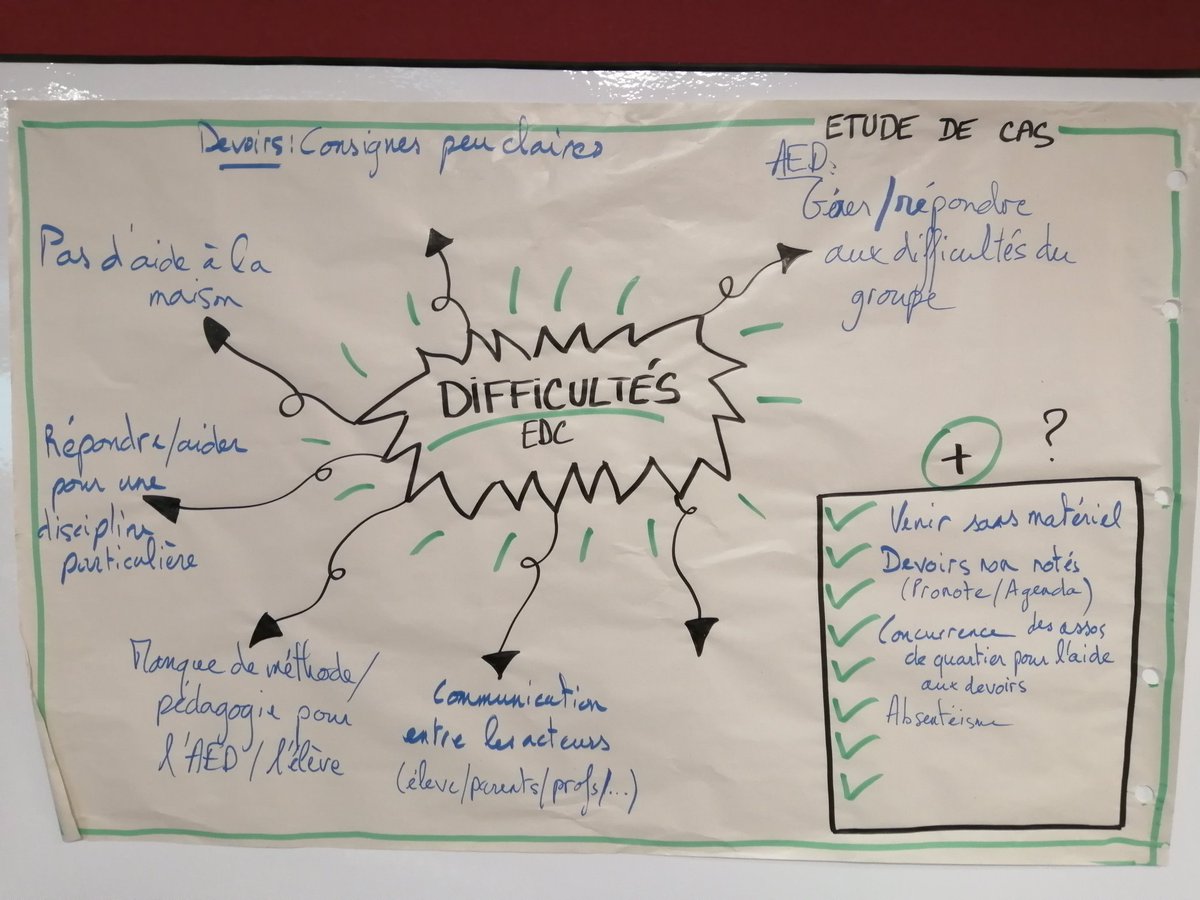 ETUDE DE CAS
Devoirs : Consignes peu claires
AED:
Gérer/répondre
aux difficultés du
groupe
Pas d'aide à la
maison
DIFFICULTÉS
EDC
Répondre/aider
pour une
discipline
particulière
Manque de méthode/
pédagogie pour
l'AED/l'élève
Communication
entre les acteurs
(élève/parents/profs/...)
+ ?
Venir sans matériel
Devoirs non notés
(Pronote/Agenda)
Concurrence des assos
de quartier pour l'aide
aux devoirs
Absentéisme